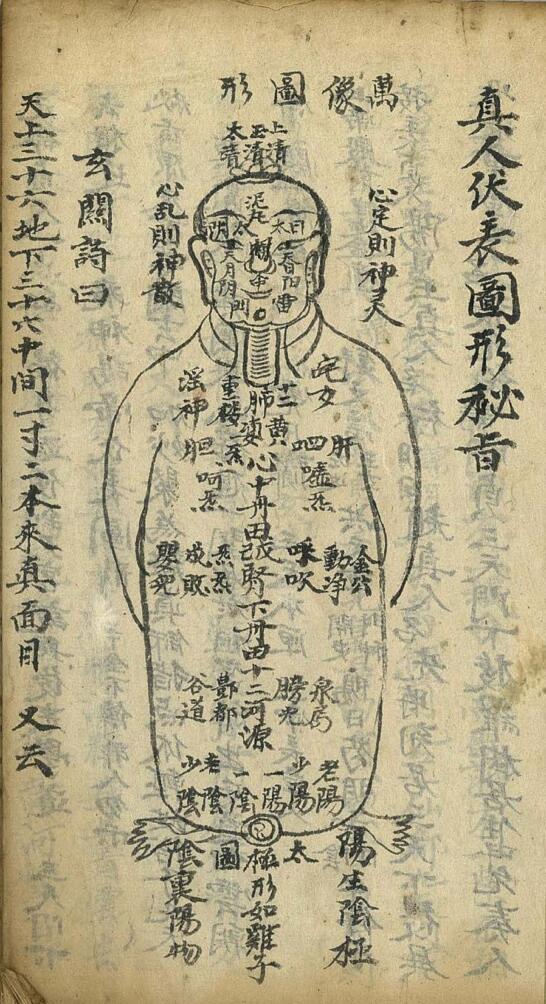 真人伏衰圖形秘旨
萬像圖形
上清
玉清
太清
心定則神灵
心乱則神散
泥丸
太陰
太日
姹女
十二
重楼
肺
黄婆
肝
胆
心中丹田戊己腎下丹田十二河源
呬
呵
呼吹
動净
金公
嬰兒
成敗
泉局
膀光
酆都
谷道
老陽
少陽
一陽
一陰
老陰
少陰
太極圖
形如雞子
陽生陰極
陰裏陽物
玄關詩曰
天上三十六地下三十六中间一寸二本來真面目 又云